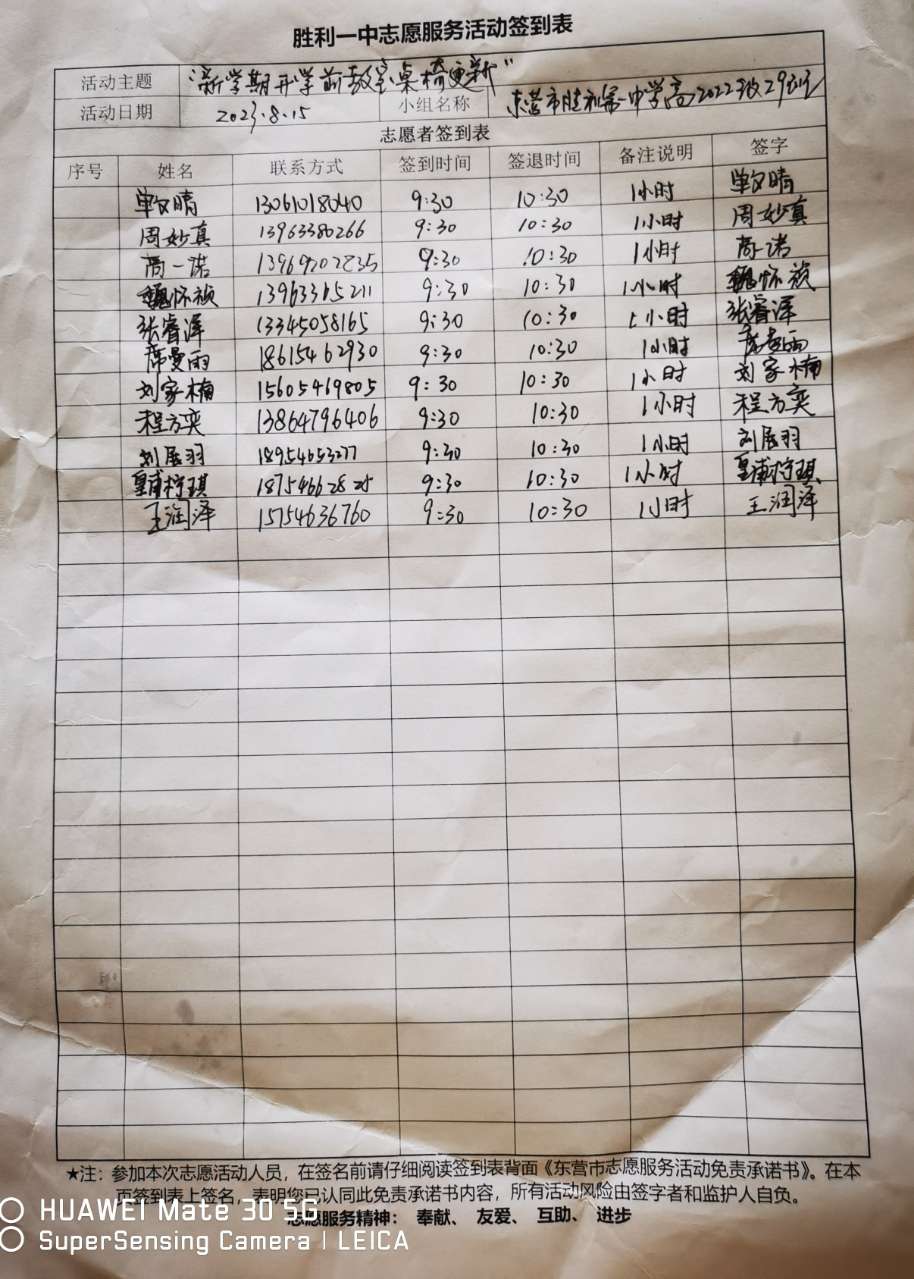 胜利一中志愿服务活动签到表
活动主题 "新学期开学前教室桌椅更新"
活动日期 2023.8.15 小组名称 东营市胜利第一中学高2022级29班
志愿者签到表
序号 姓名 联系方式 签到时间 签退时间 备注说明 签字
单文晴 13061018040 9:30 10:30 1小时 单文晴
周妙真 13963380266 9:30 10:30 1小时 周妙真
商一诺 13969202235 9:30 10:30 1小时 商一诺
魏怀祯 13963365211 9:30 10:30 1小时 魏怀祯
张睿泽 13345058165 9:30 10:30 1小时 张睿泽
席曼雨 18615462930 9:30 10:30 1小时 席曼雨
刘家楠 15605469805 9:30 10:30 1小时 刘家楠
程方奕 13864796406 9:30 10:30 1小时 程方奕
刘展羽 18954653277 9:30 10:30 1小时 刘展羽
皇甫梓琪 18754662825 9:30 10:30 1小时 皇甫梓琪
王润泽 15754636760 9:30 10:30 1小时 王润泽
★注：参加本次志愿活动人员，在签名前请仔细阅读签到表背面《东营市志愿服务活动免责承诺书》。在本
页签到表上签名，表明您已认同此免责承诺书内容，所有活动风险由签字者和监护人自负。
志愿服务精神： 奉献、 友爱、 互助、 进步
HUAWEI Mate 30 5G
SuperSensing Camera | LEICA